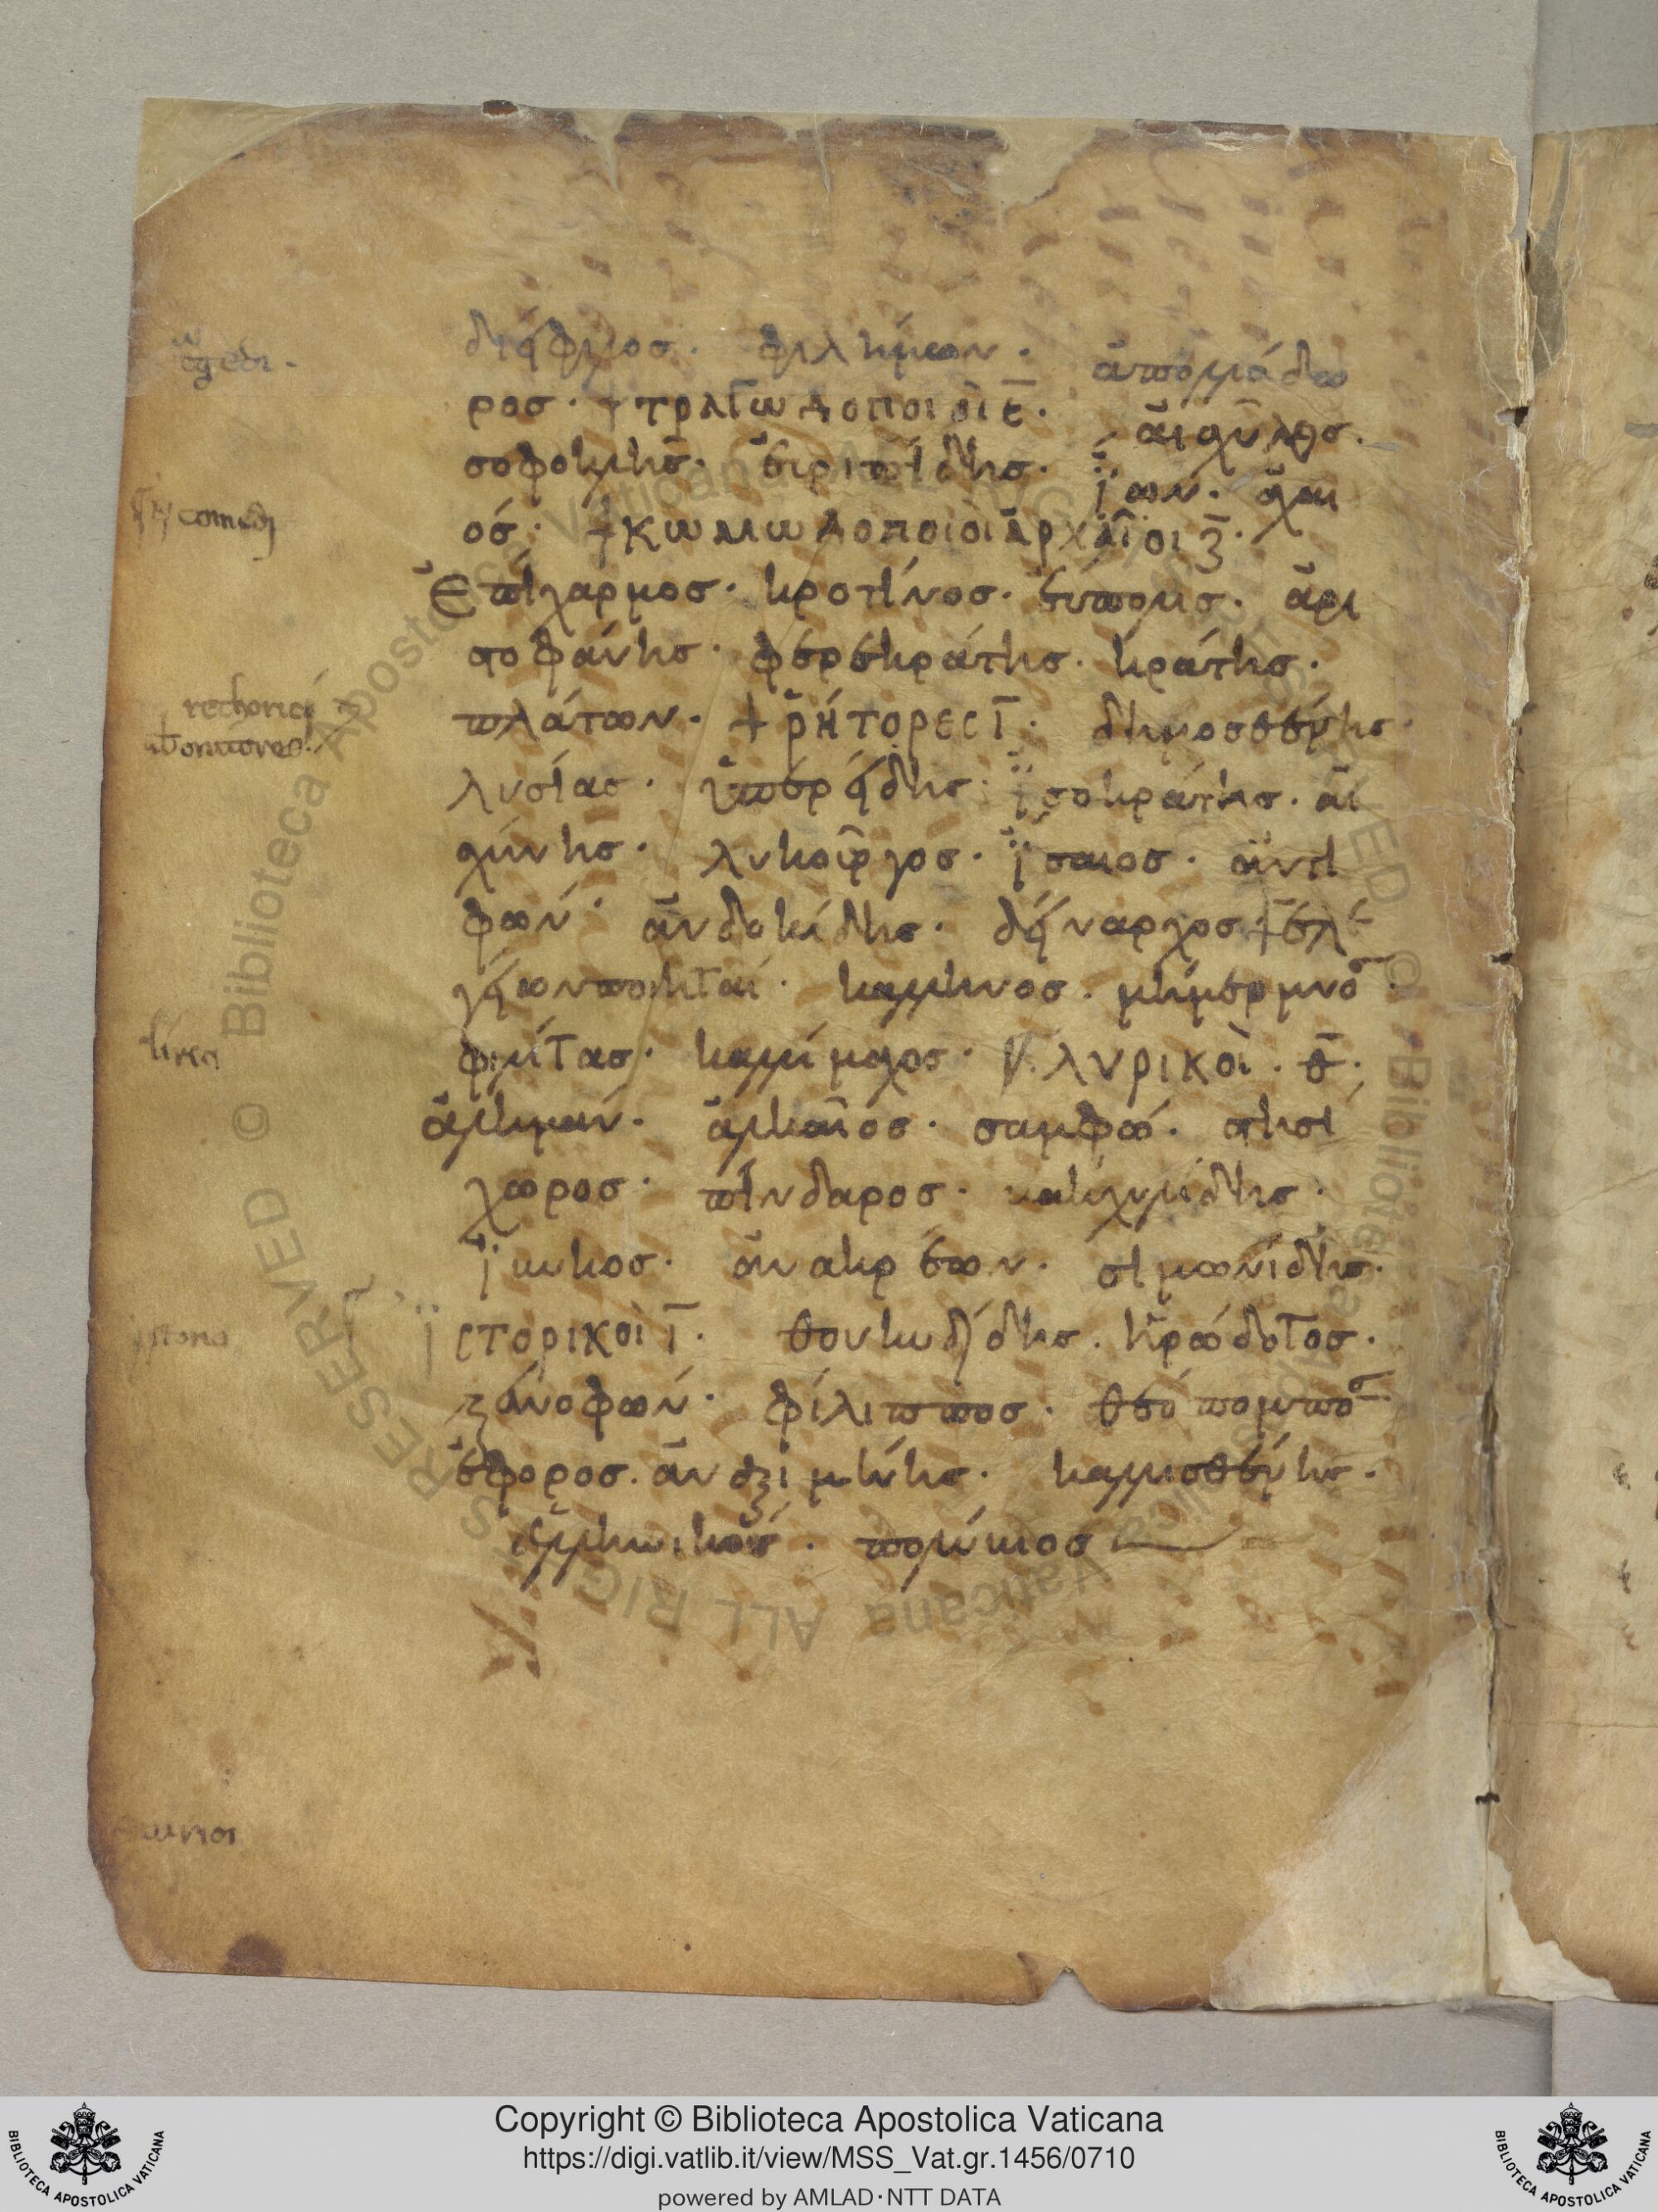 δήφιλος. φιλήμων. ἀπολλόδω
ρος. + τραγωδοποιοὶ ε̄. αἰσχύλος.
σοφοκλῆς. εὐριπίδης. ἴων. ἀχαι
ός. + κωμωδοποιοὶ ἀρχαῖοι ζ̄.
Ἐπίχαρμος. κρατίνος. εὔπολις. ἀρι
στοφάνης. φερεκράτης. κράτης.
πλάτων. + ῥήτορες ῑ. δημοσθένης.
λυσίας. ὑπερήδης. ἰσοκράτης. αἰ
σχίνης. λυκοῦργος. ἴσαιος. ἀντι
φών. ἀνδοκίδης. δήναρχος. + ἐλε
γήων ποιηταί. καλλινος. μήμερμνος.
φιλίτας. καλλίμαχος. λυρικοὶ. θ̄.
ἀλκμαν. ἀλκαῖος. σαμφώ. στησί
χωρος. πίνδαρος. βακχυλίδης.
ἴβυκος. ἀνακρέων. σιμωνίδης.
ἱστορικοὶ ῑ. θουκυδήδης. ἡρώδοτος.
ξένοφων. φίλιππος. θεόπομπος.
ἔφορος. ἀναξιμένης. καλλισθένης.
ἑλλανικος. πολύβιος
comedi
rethorici
oratores
lirica
Copyright © Biblioteca Apostolica Vaticana
https://digi.vatlib.it/view/MSS_Vat.gr.1456/0710
powered by AMLAD·NTT DATA
BIBLIOTECA APOSTOLICA VATICANA
BIBLIOTECA APOSTOLICA VATICANA